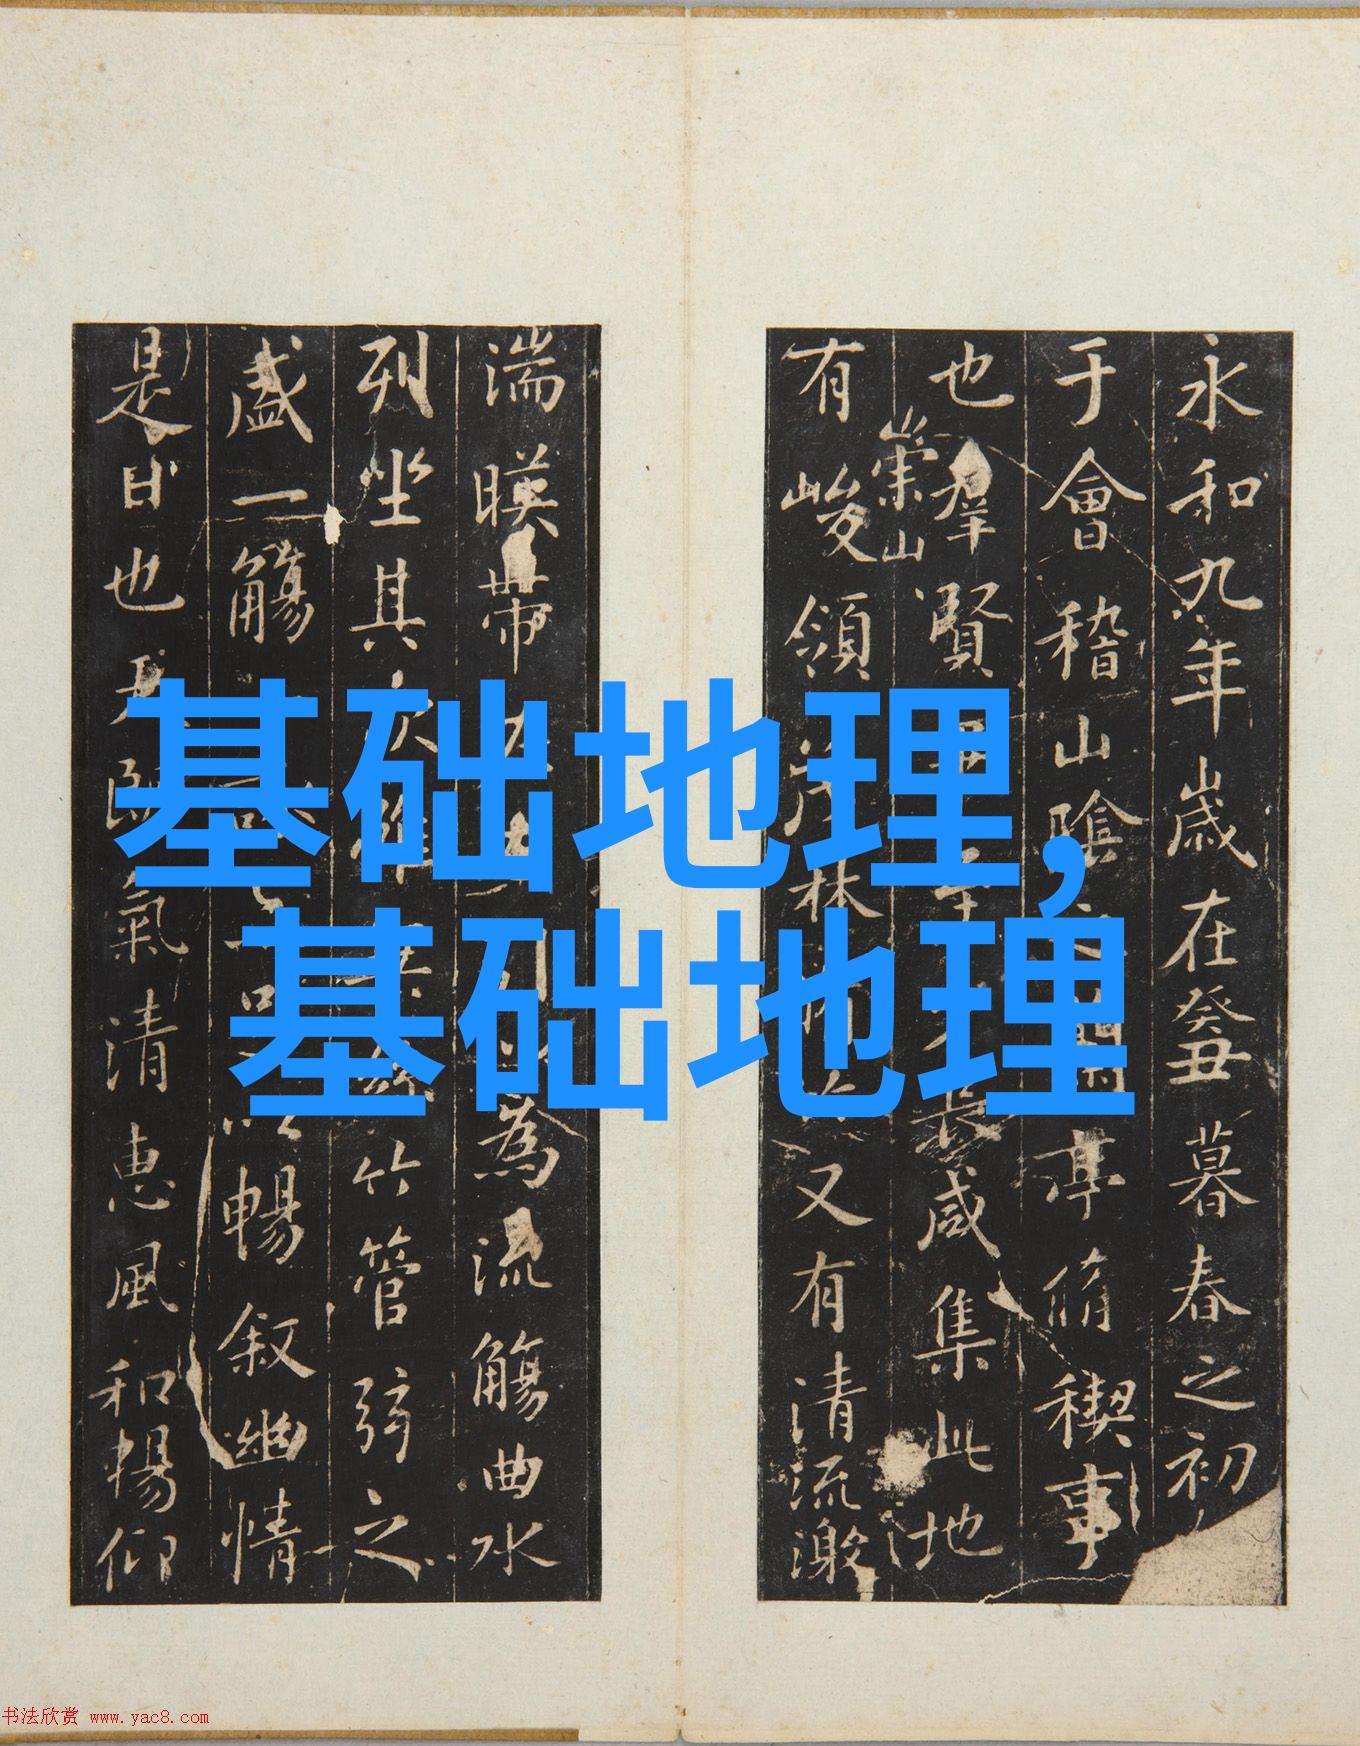 基础地理,
基础地理
永和九年歲在癸丑暮春之初
于會稽山陰亭脩禊事
也羣賢長咸集此地
崇山
有峻領茂林又有清流激
湍暎帶為流觴曲水
列坐其次竹管弦之
盛一觴以暢敘幽情
是日也天朗氣清惠風和暢仰
书法欣赏 www.yac8.com